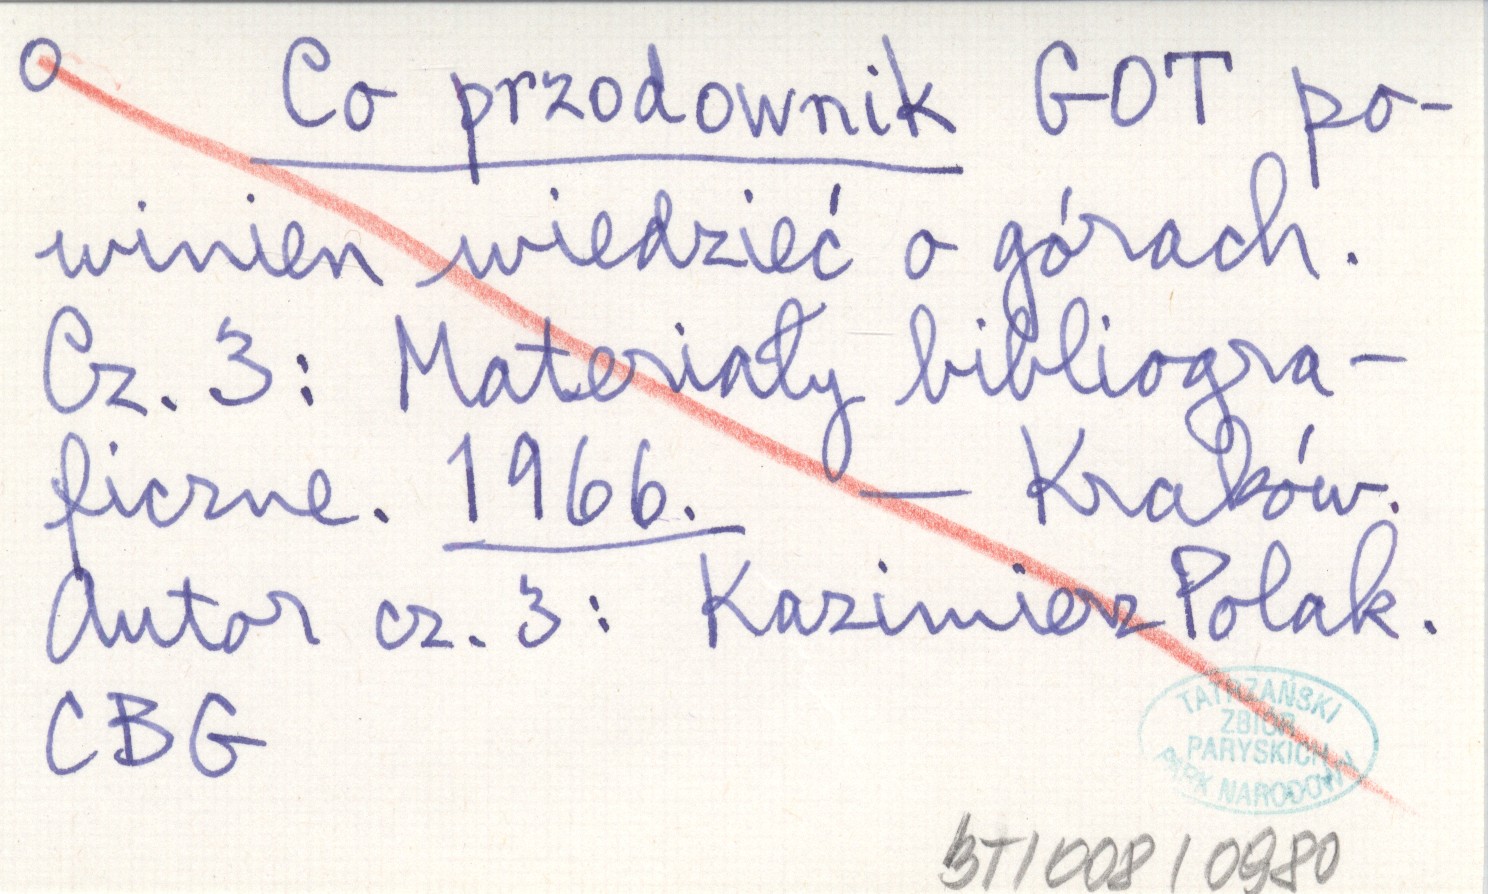 O Co przodownik GOT po-
winien wiedzieć o górach.
Cz. 3: Materiały bibliogra-
ficzne. 1966. — Kraków.
Autor cz. 3: Kazimierz Polak.
CBG
TATRZAŃSKI
ZBIÓR
PARYSKICH
PARK NARODOWY
BT/008/0980